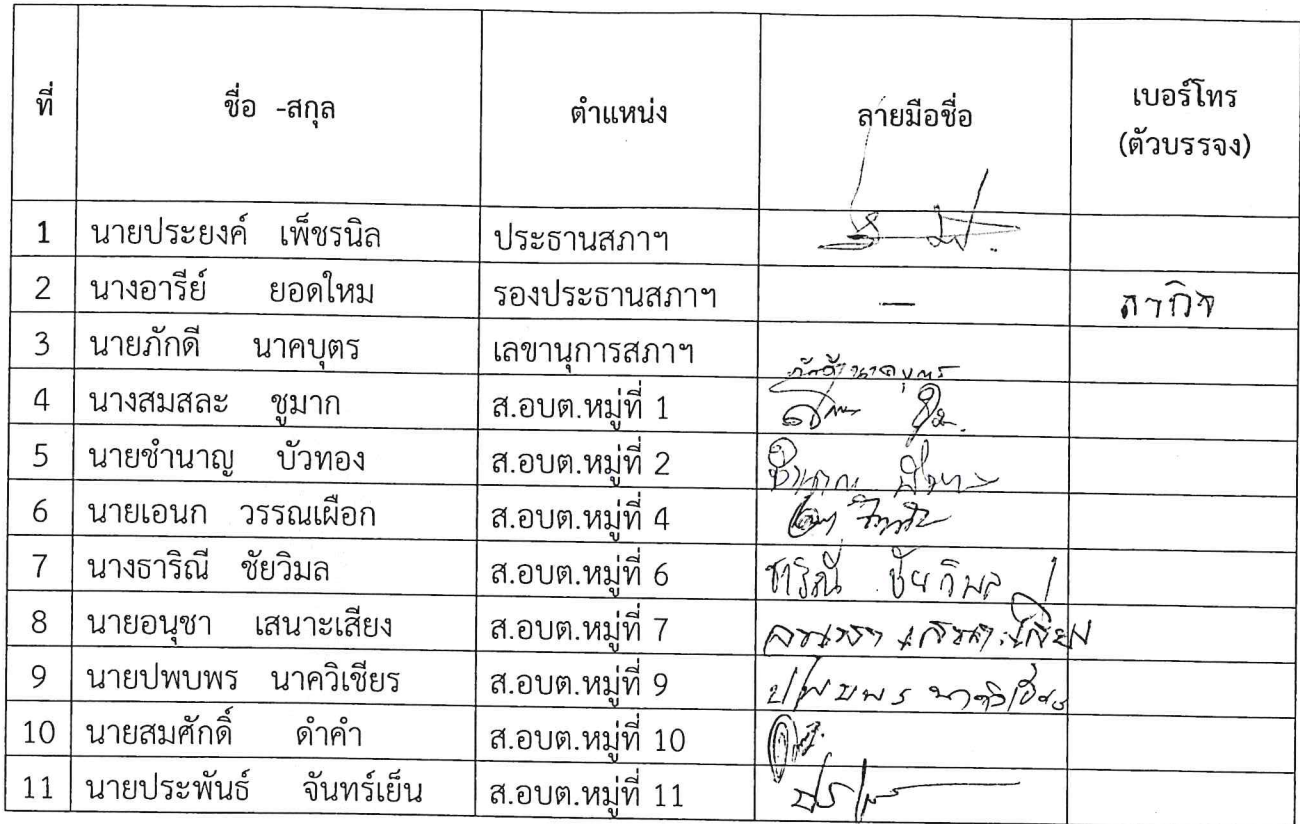 ที่ ชื่อ -สกุล ตำแหน่ง ลายมือชื่อ เบอร์โทร
(ตัวบรรจง)
1 นายประยงค์ เพ็ชรนิล ประธานสภาฯ
2 นางอารีย์ ยอดใหม รองประธานสภาฯ — ภากิจ
3 นายภักดี นาคบุตร เลขานุการสภาฯ ภักดี นาคบุตร
4 นางสมสละ ชูมาก ส.อบต.หมู่ที่ 1
5 นายชำนาญ บัวทอง ส.อบต.หมู่ที่ 2
6 นายเอนก วรรณเผือก ส.อบต.หมู่ที่ 4
7 นางธาริณี ชัยวิมล ส.อบต.หมู่ที่ 6 ธาริณี ชัยวิมล
8 นายอนุชา เสนาะเสียง ส.อบต.หมู่ที่ 7
9 นายปพบพร นาควิเชียร ส.อบต.หมู่ที่ 9 ปพบพร นาควิเชียร
10 นายสมศักดิ์ ดำคำ ส.อบต.หมู่ที่ 10
11 นายประพันธ์ จันทร์เย็น ส.อบต.หมู่ที่ 11